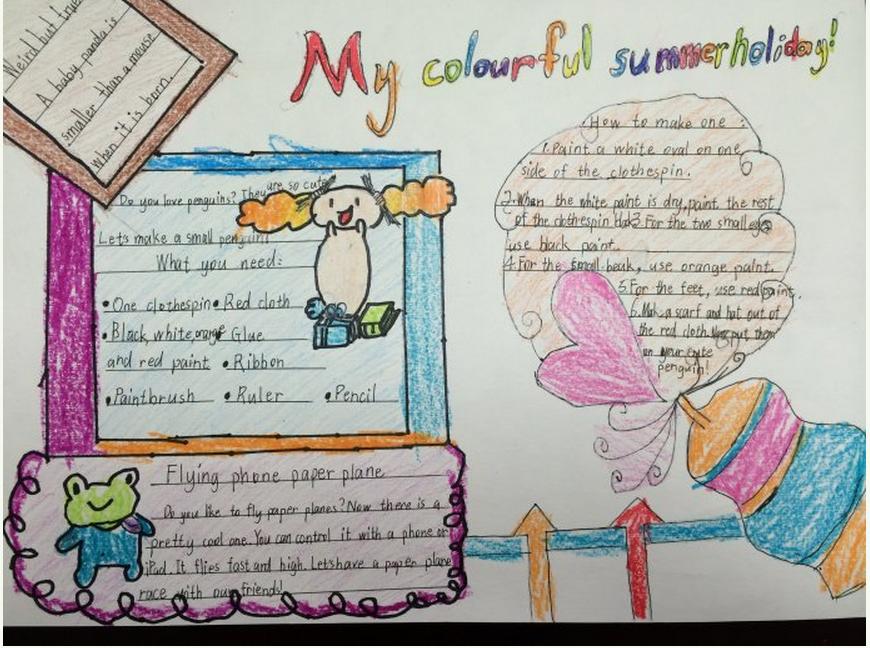 My colourful summerholiday!
Weird but true
A baby panda is
smaller than a mouse
when it is born.
Do you love penguins? They are so cute
Let's make a small penguin!
What you need:
• One clothespin • Red cloth
• Black, white, orange • Glue
and red paint • Ribbon
• Paintbrush • Ruler • Pencil
Flying phone paper plane
Do you like to fly paper planes? Now there is a
pretty cool one. You can control it with a phone or
iPad. It flies fast and high. Let's have a paper plane
race with our friends!
How to make one:
1. Paint a white oval on one
side of the clothespin.
2. When the white paint is dry, paint the rest
of the clothespin 3. For the two small
use black paint.
4. For the small beak, use orange paint.
5. For the feet, use red paint.
6. Make a scarf and hat out of
the red cloth. put them
on your cute
penguin!